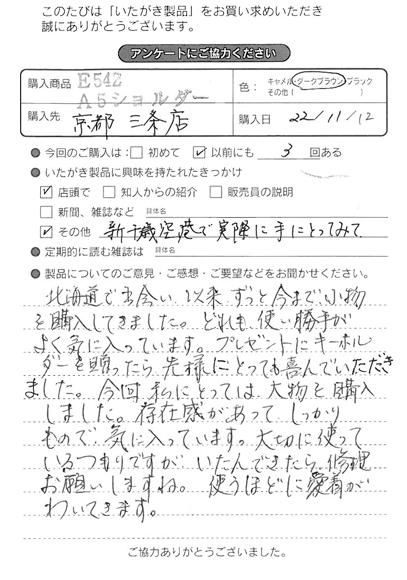 このたびは「いたがき製品」をお買い求めいただき
誠にありがとうございます。
アンケートにご協力ください
購入商品 E542
A5ショルダー
色： キャメル・ダークブラウン・ブラック
その他（ ）
購入先 京都 三条店
購入日 22/11/12
● 今回のご購入は： □ 初めて ☑ 以前にも 3 回ある
● いたがき製品に興味を持たれたきっかけ
☑ 店頭で □ 知人からの紹介 □ 販売員の説明
□ 新聞、雑誌など 具体名
☑ その他 新千歳空港で実際に手にとってみて
● 定期的に読む雑誌は 具体名
● 製品についてのご意見・ご感想・ご要望などをお聞かせください。
北海道で出会い、以来 ずっと今まで、小物
を購入してきました。どれも、使い勝手が
よく気に入っています。プレゼントにキーホル
ダーを贈ったら、先様にとっても喜んでいただき
ました。今回、私にとっては、大物を購入
しました。存在感があって、しっかり
もので、気に入っています。大切に使って
いるつもりですが、いたんできたら、修理
お願いしますね。使うほどに愛着が
わいてきます。
ご協力ありがとうございました。